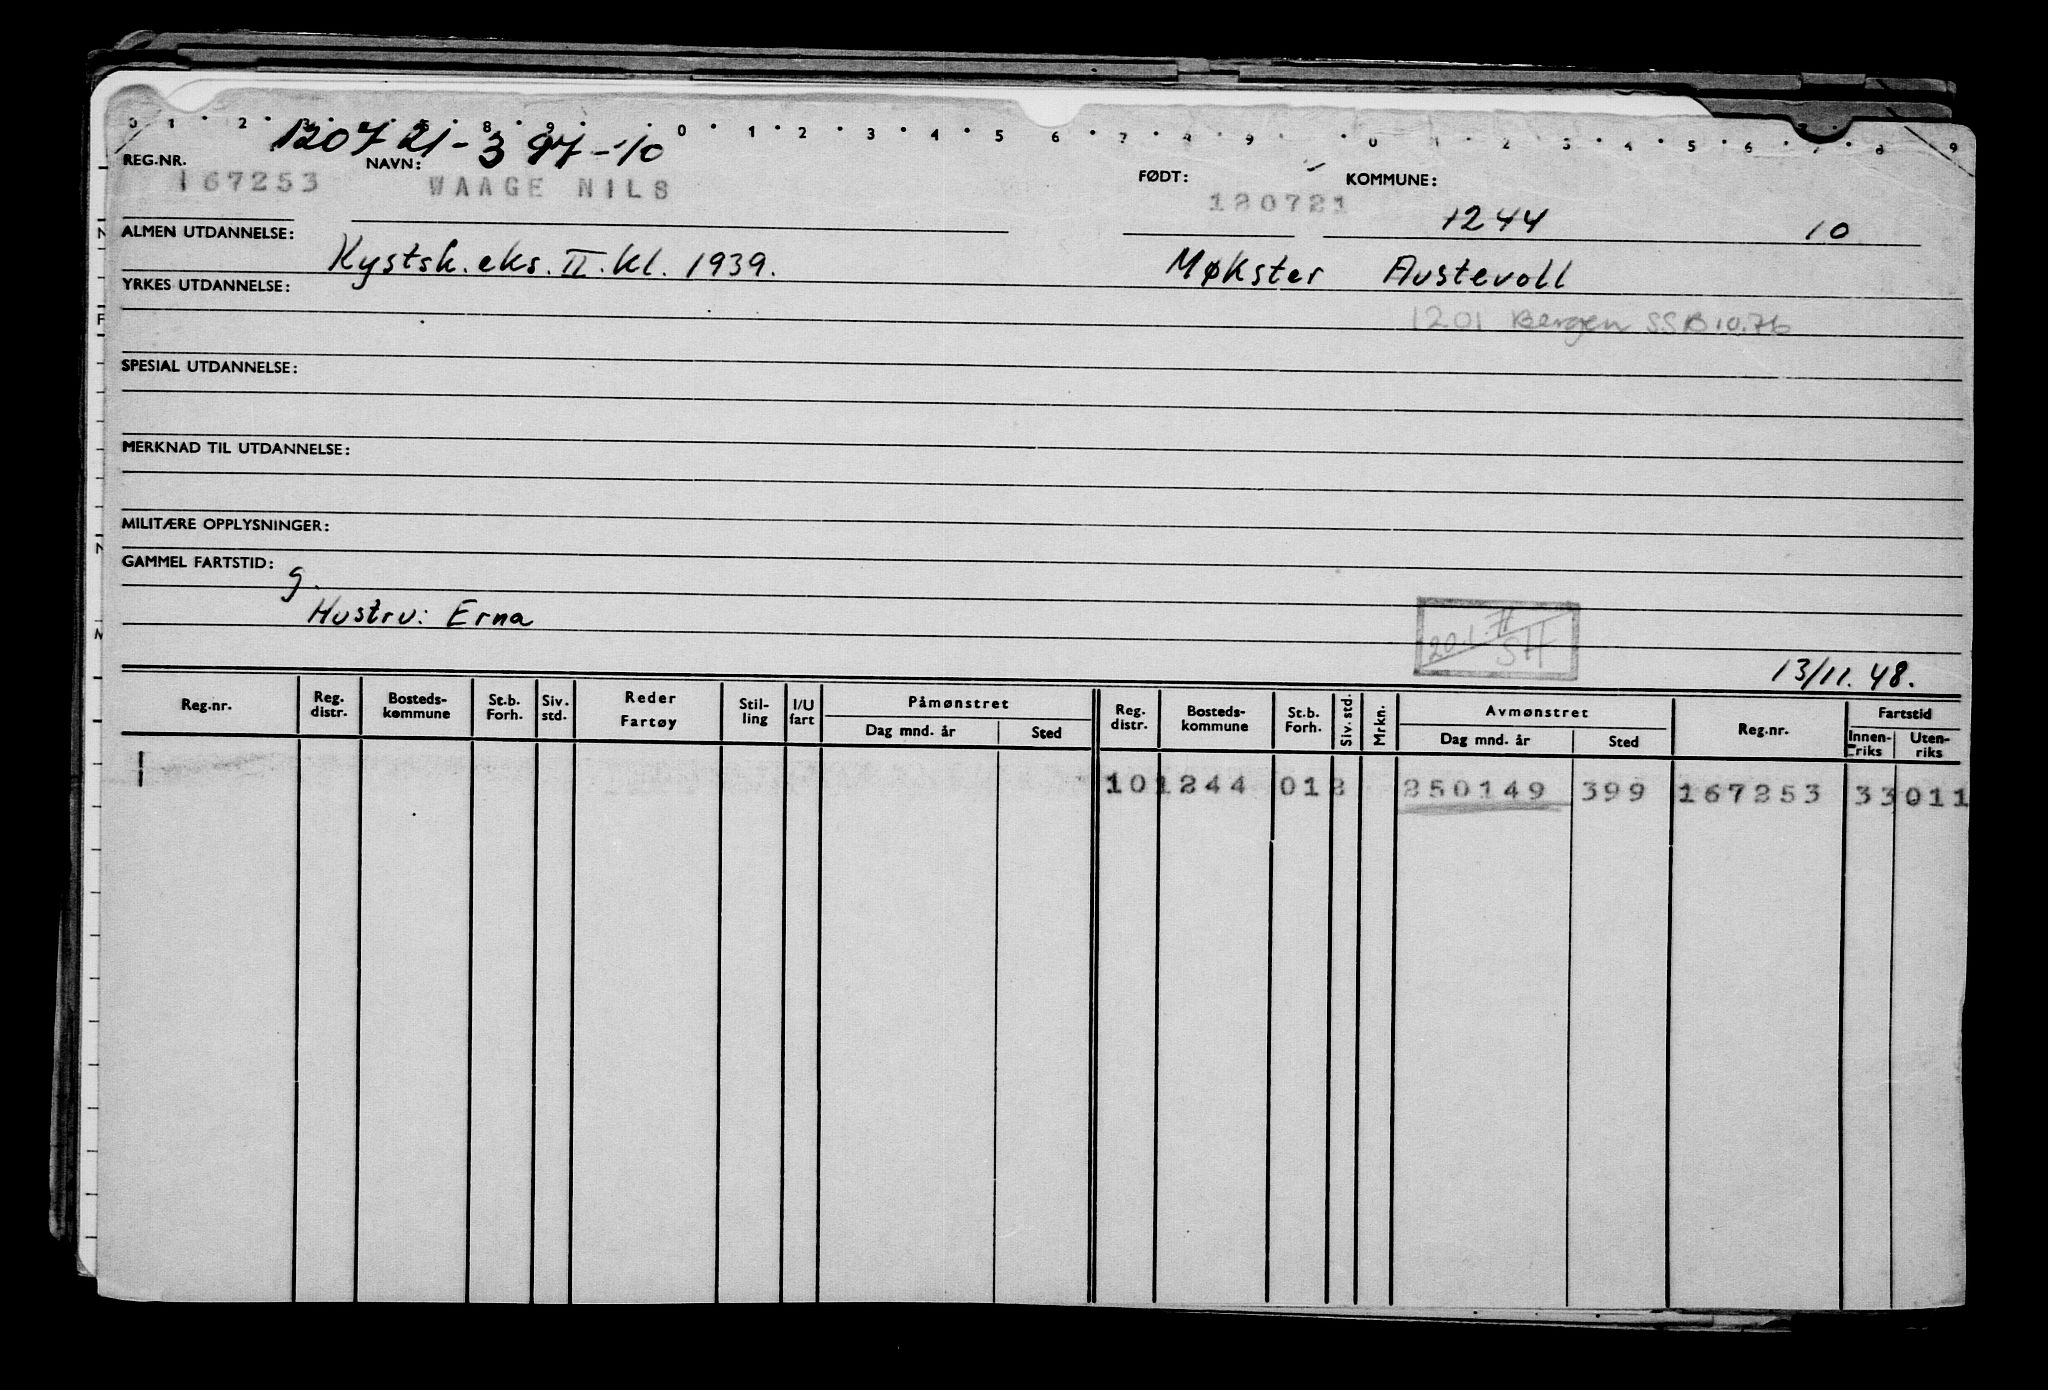 0 1 2 3 5 8 9 0 1 2 3 4 5 6 7 8 9 0 1 2 3 4 5 6 7 8 9
120721-397-10
REG.NR. NAVN: FØDT: KOMMUNE:
167253 WAAGE NILS 120721 1244 10
ALMEN UTDANNELSE: Kystsk.eks. II. kl. 1939. Møkster Austevoll
YRKES UTDANNELSE:
1201 Bergen SSB 10.76
SPESIAL UTDANNELSE:
MERKNAD TIL UTDANNELSE:
MILITÆRE OPPLYSNINGER:
GAMMEL FARTSTID:
g.
Hustru: Erna
SH
13/11.48.
Reg.nr. Reg. distr. Bosteds-kommune St.b. Forh. Siv. std. Reder Fartøy Stil-ling I/U fart Påmønstret Dag mnd. år Sted Reg. distr. Bosteds-kommune St.b. Forh. Siv. std. Mrkn. Avmønstret Dag mnd. år Sted Reg.nr. Fartstid Innen-riks Uten-riks
10 1244 012 250149 399 167253 33 011